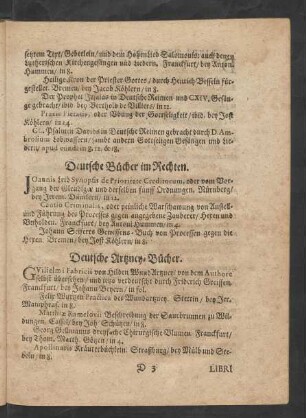 setzten Text/ Gebetlein/ und dem Hasenlied Salomonis: auch denen
Lutherischen Kirchengesängen und Liedern. Franckfurt/ bey Anton.
Hummen/ in 8.
Heiligthum der Priester Gottes/ durch Heinrich Besseln für-
gestellet. Bremen/ bey Jacob Köhlern/ in 8.
Der Prophet Jesaias in Deutsche Reimen und CXIV. Gesän-
ge gebracht/ ibid. bey Berthold de Villiers/ in 12.
Praxis Pietatis, oder Übung der Gottseligkeit/ ibid. bey Jost
Köhlern/ in 24.
CL. Psalmen Davids in Deutsche Reimen gebracht durch D. Am-
brosium Lobwassern/ sambt anderen gewöhnlichen Gesängen und Lie-
dern/ apud eundem in 8. 12. &
Deutsche Bücher im Rechten.
JOannis Irid Synopsis de Prioritate Creditorum, oder vom Vor-
gang der Gläubiger und derselben fünff Ordnungen. Nürnberg/
bey Jerem. Dümlern/ in 12.
Cautio Criminalis, oder peinliche Warschauung von Anstell-
und Führung des Processes gegen angegebene Zauberer/ Hexen und
Unholden. Franckfurt/ bey Anton. Hummen/ in 4.
Johann Seiferts Gewissens-Buch von Processen gegen die
Hexen. Bremen/ bey Jost Köhlern/ in 8.
Deutsche Artzney-Bücher.
GUilielmi Fabricii von Hilden Wund-Artzney/ von dem Authore
selbst übersehen/ und jetzo verdeutscht durch Friderich Greiffen.
Franckfurt/ bey Johann Beyern/ in fol.
Felix Wurtzen Practica der Wundartzney. Stettin/ bey Jer.
Mamphras/ in 8.
Matthiæ Ramelovii Beschreibung der Saurbrunnen zu Wil-
dungen. Cassel/ bey Joh. Schützen/ in 8.
Georg Gelmanns dreyfache Chirurgische Blumen. Franckfurt/
bey Thom. Matth. Götzen/ in 4.
Apollinaris Kräuterbüchlein. Straßburg/ bey Mülb und Ste-
deln/ in 8.
D 3 LIBRI